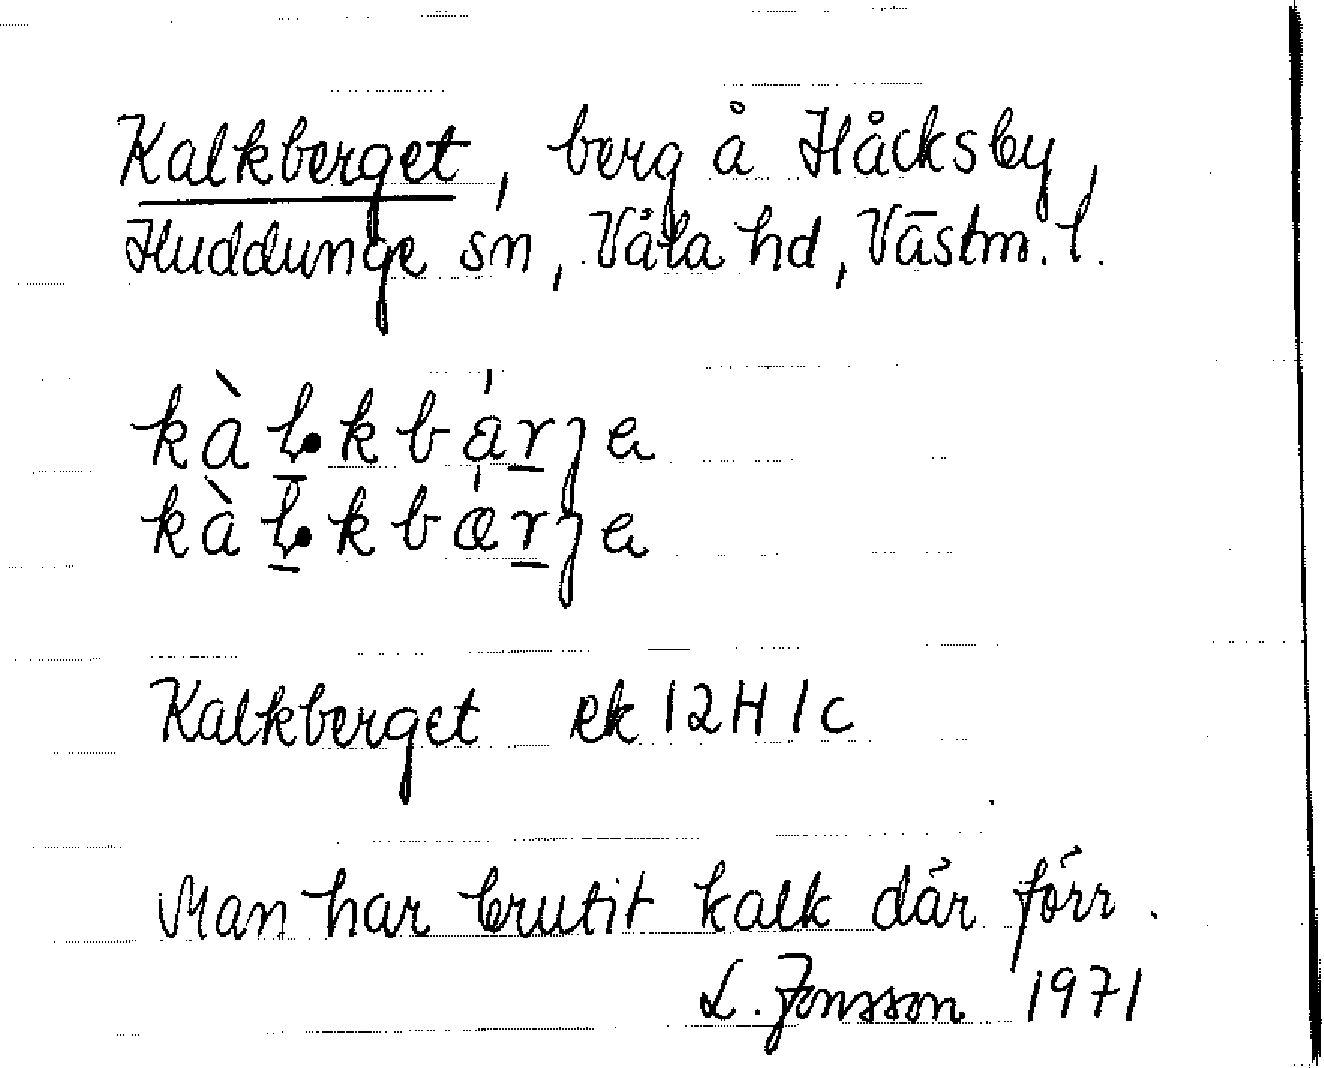 Kalkberget, berg å Håcksby,
Huddunge sn, Våla hd, Västm. l.
kàḷkbárje
kàḷkbǽrje
Kalkberget ek 12H 1c
Man har brutit kalk där förr.
L. Jonsson 1971